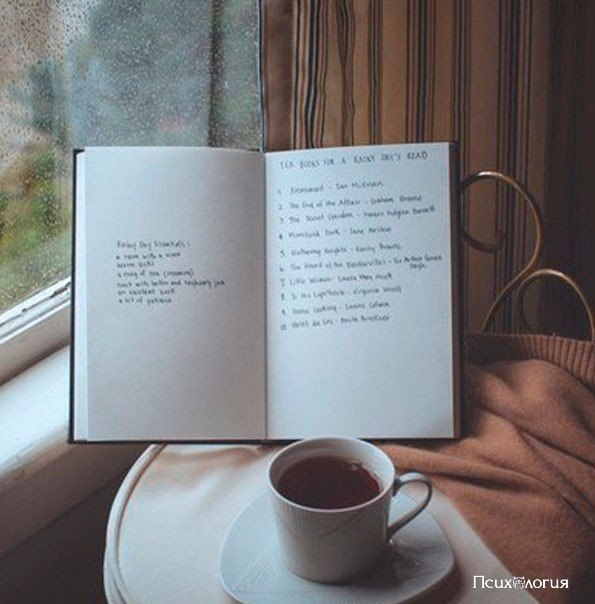 Rainy Day Essentials:
a room with a view
warm socks
a mug of tea (steaming)
toast with butter and raspberry jam
an excellent book
a bit of patience
TEN BOOKS FOR A RAINY DAY'S READ
1 Atonement - Ian McEwan
2 The End of the Affair - Graham Greene
3 The Secret Garden - Frances Hodgson Burnett
4 Mansfield Park - Jane Austen
5 Wuthering Heights - Emily Brontë
6 The Hound of the Baskervilles - Sir Arthur Conan
Doyle
7 Little Women - Louisa May Alcott
8 To the Lighthouse - Virginia Woolf
9 Home Cooking - Laurie Colwin
10 Hotel du Lac - Anita Brookner
Психология